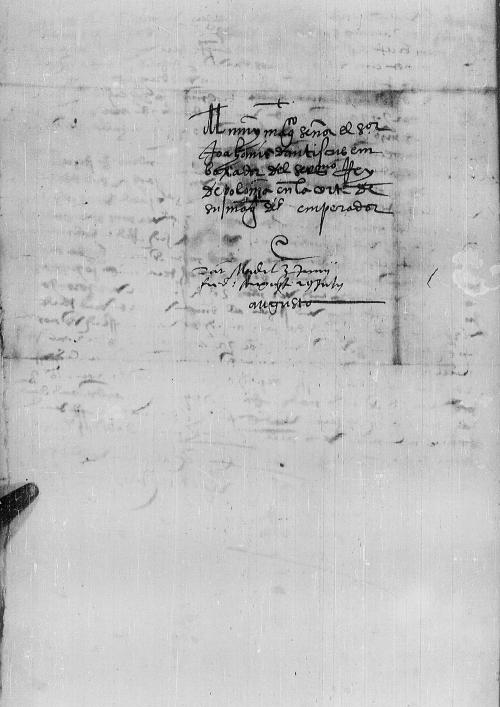 Al muy mag.co señor el sor
Joahanis dantiscus em
baxador del sere.mo Rey
de polonia en la corte de
su mag. del emperador
Dat. Madril 3 Junij
July
augusto